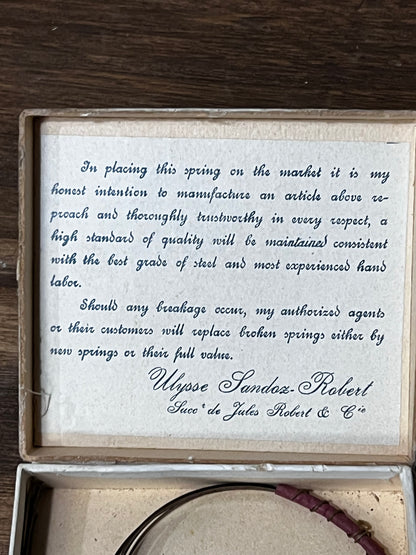 In placing this spring on the market it is my
honest intention to manufacture an article above re-
proach and thoroughly trustworthy in every respect, a
high standard of quality will be maintained consistent
with the best grade of steel and most experienced hand
labor.
Should any breakage occur, my authorized agents
or their customers will replace broken springs either by
new springs or their full value.
Ulysse Sandoz-Robert
Succ.r de Jules Robert & Cie